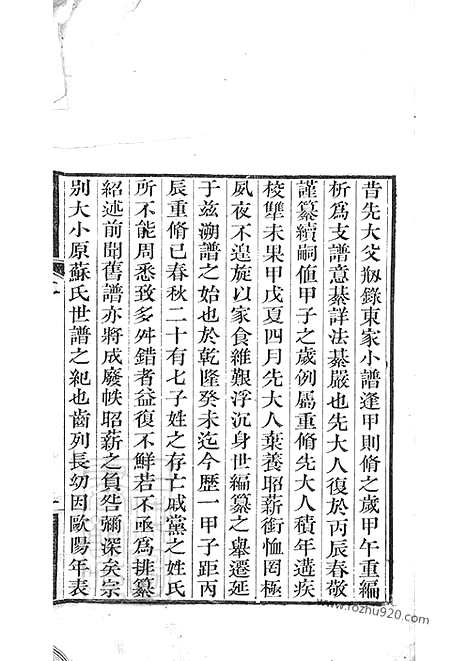 昔先大父剏錄東家小譜逢甲則脩之歲甲午重編
析爲支譜意綦詳法綦嚴也先大人復於丙辰春敬
謹纂續嗣值甲子之歲例屬重脩先大人積年遘疾
校讐未果甲戊夏四月先大人棄養昭薪銜恤罔極
夙夜不遑旋以家食維艱浮沉身世編纂之舉遷延
于兹溯譜之始也於乾隆癸未迄今歷一甲子距丙
辰重脩已春秋二十有七子姓之存亡戚黨之姓氏
所不能周悉致多舛錯者益復不鮮若不亟爲排纂
紹述前聞舊譜亦將成廢帙昭薪之負咎彌深矣宗
別大小原蘇氏世譜之紀也齒列長幼因歐陽年表
www.rozhu920.com